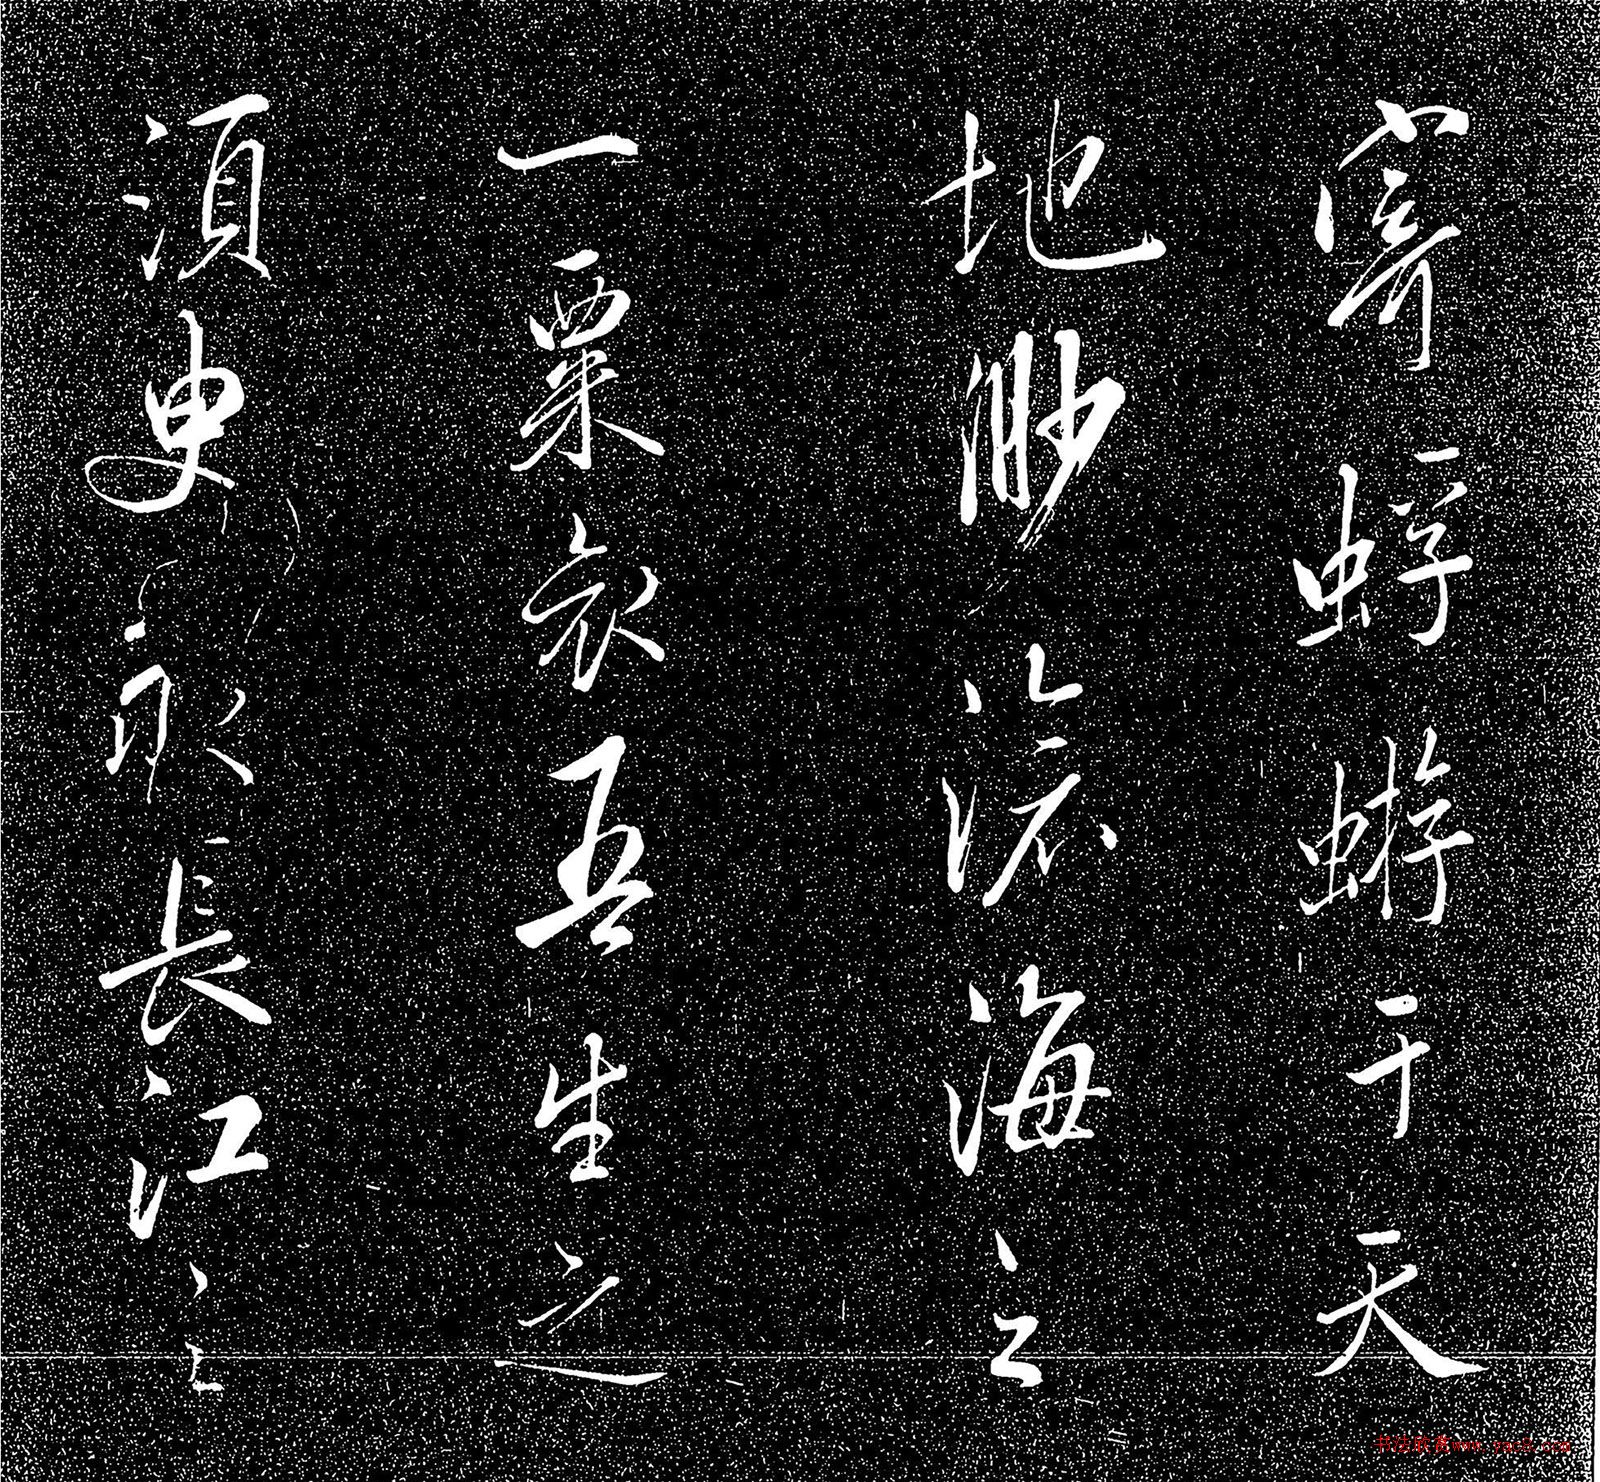 寄蜉蝣于天
地渺滄海之
一粟哀吾生之
須臾羨長江之
书法欣赏www.yac8.com